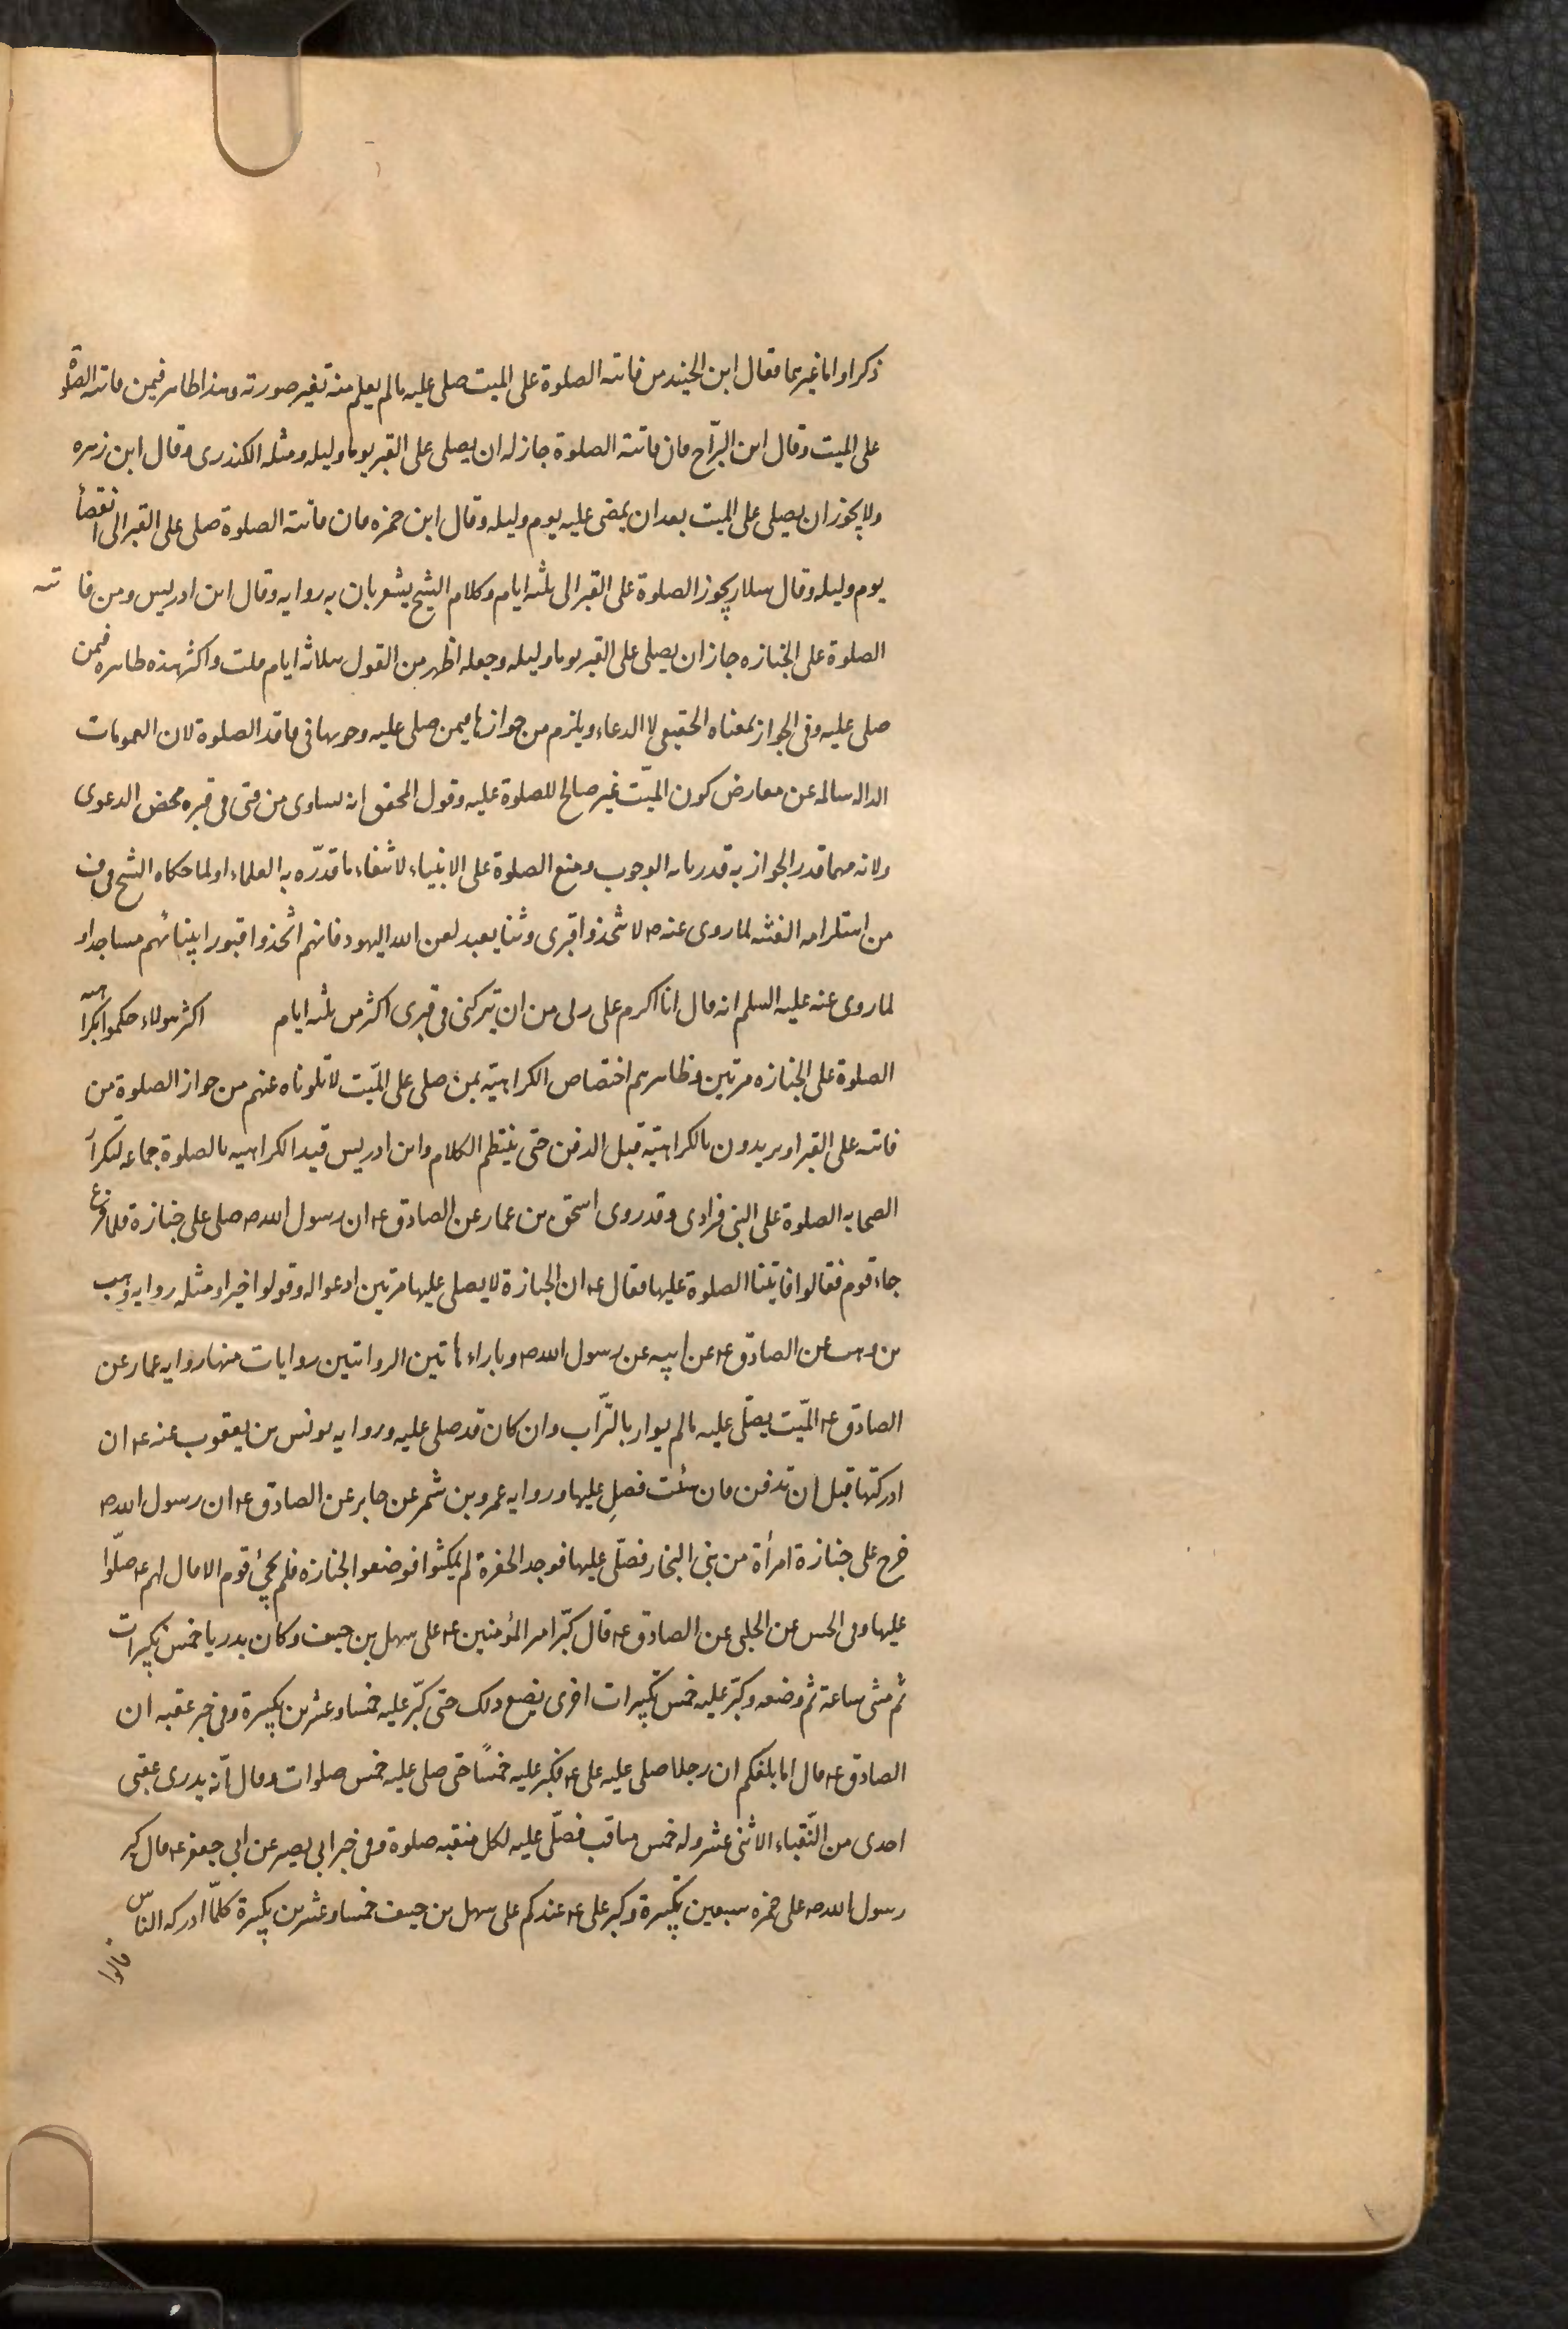 ذكرا واما غيرهما فقال ابن الجنيد من فاتته الصلوة على الميت صلى عليه مالم يعلم منه تغير صورته وهذا ظاهر فيمن فاتته الصلوة
على الميت وقال ابن البراج فان فاتته الصلوة جاز له ان يصلى على القبر يوما وليله ومثله الكندرى وقال ابن زهره
ولا يجوز ان يصلى على الميت بعد ان يمضى عليه يوم وليله وقال ابن حمزه فان فاتته الصلوة صلى على القبر الى انقضأ
يوم وليله وقال سلار يجوز الصلوة على القبر الى ثلثه ايام وكلام الشيخ يشعر بان به روايه وقال ابن ادريس ومن فاتته
الصلوة على الجنازه جاز ان يصلى على القبر يوما وليله وجعله اظهر من القول بثلاثه ايام قلت واكثر هذه ظاهره فيمن
صلى عليه وفى الجواز بمعناه الحقيقى لا الدعاء ويلزم من جوازها فيمن صلى عليه وجوبها فى فاقد الصلوة لان العمومات
الداله سالمه عن معارض كون الميّت غير صالح للصلوة عليه وقول المحقق انه يساوى من فنى فى قبره محض الدعوى
ولانه مهما قدر الجواز به قدرنا به الوجوب ومنع الصلوة على الانبياء لانتفاء ما قدّره به العلماء او لما حكاه الشيخ فى ف
من استلزامه الفتنه لما روى عنه ص لا تتخذوا قبرى وثنا يعبد لعن الله اليهود فانهم اتخذوا قبور انبيائهم مساجد او
لما روى عنه عليه السلم انه قال انا اكرم على ربى من ان يتركنى فى قبرى اكثر من ثلثه ايام اكثر هولاء حكموا بكراهيه
الصلوة على الجنازه مرتين وظاهرهم اختصاص الكراهيّه بمن صلى على الميّت لما تلوناه عنهم من جواز الصلوة من
فاتته على القبر او يريدون بالكراهيّة قبل الدفن حتى ينتظم الكلام وابن ادريس قيد الكراهيه بالصلوة جماعه لتكرار
الصحابه الصلوة على النبى فرادى وقد روى اسحق بن عمار عن الصادق ع ان رسول الله ص صلى على جنازة فلما فرغ
جاء قوم فقالوا فاتتنا الصلوة عليها فقال ع ان الجنازة لا يصلى عليها مرتين ادعوا له وقولوا خيرا ومثله روايه وهب
بن وهب عن الصادق ع عن ابيه عن رسول الله ص وبازاء هاتين الروايتين روايات منها روايه عمار عن
الصادق ع الميّت يصلّى عليه مالم يوار بالتّراب وان كان قد صلى عليه وروايه يونس بن يعقوب عنه ع ان
ادركتها قبل ان تدفن فان شئت فصلِ عليها وروايه عمرو بن شمر عن جابر عن الصادق ع ان رسول الله ص
خرج على جنازة امرأة من بنى النجار فصلّى عليها فوجد الحفرة لم يمكثوا فوضعوا الجنازه فلم يجئ قوم الا قال لهم ع صلّوا
عليها وفى الحسن عن الحلبى عن الصادق ع قال كبّر امير المؤمنين ع على سهل بن حنيف وكان بدريا خمس تكبيرات
ثم مشى ساعة ثم وضعه وكبّر عليه خمس تكبيرات اخرى يصنع ذلك حتى كبّر عليه خمسا وعشرين تكبيرة وفى خبر عقبه ان
الصادق ع قال اما بلغكم ان رجلا صلى عليه على ع فكبر عليه خمسًا حتى صلى عليه خمس صلوات وقال انّه بدرى عقبى
احدى من النّقباء الاثنى عشر وله خمس مناقب فصلّى عليه لكل منقبه صلوة وفى خبر ابى بصير عن ابى جعفر ع قال كبر
رسول الله ص على حمزه سبعين تكبيرة وكبر على ع عندكم على سهل بن حنيف خمسا وعشرين تكبيرة كلمّا ادركه الناس
قالوا